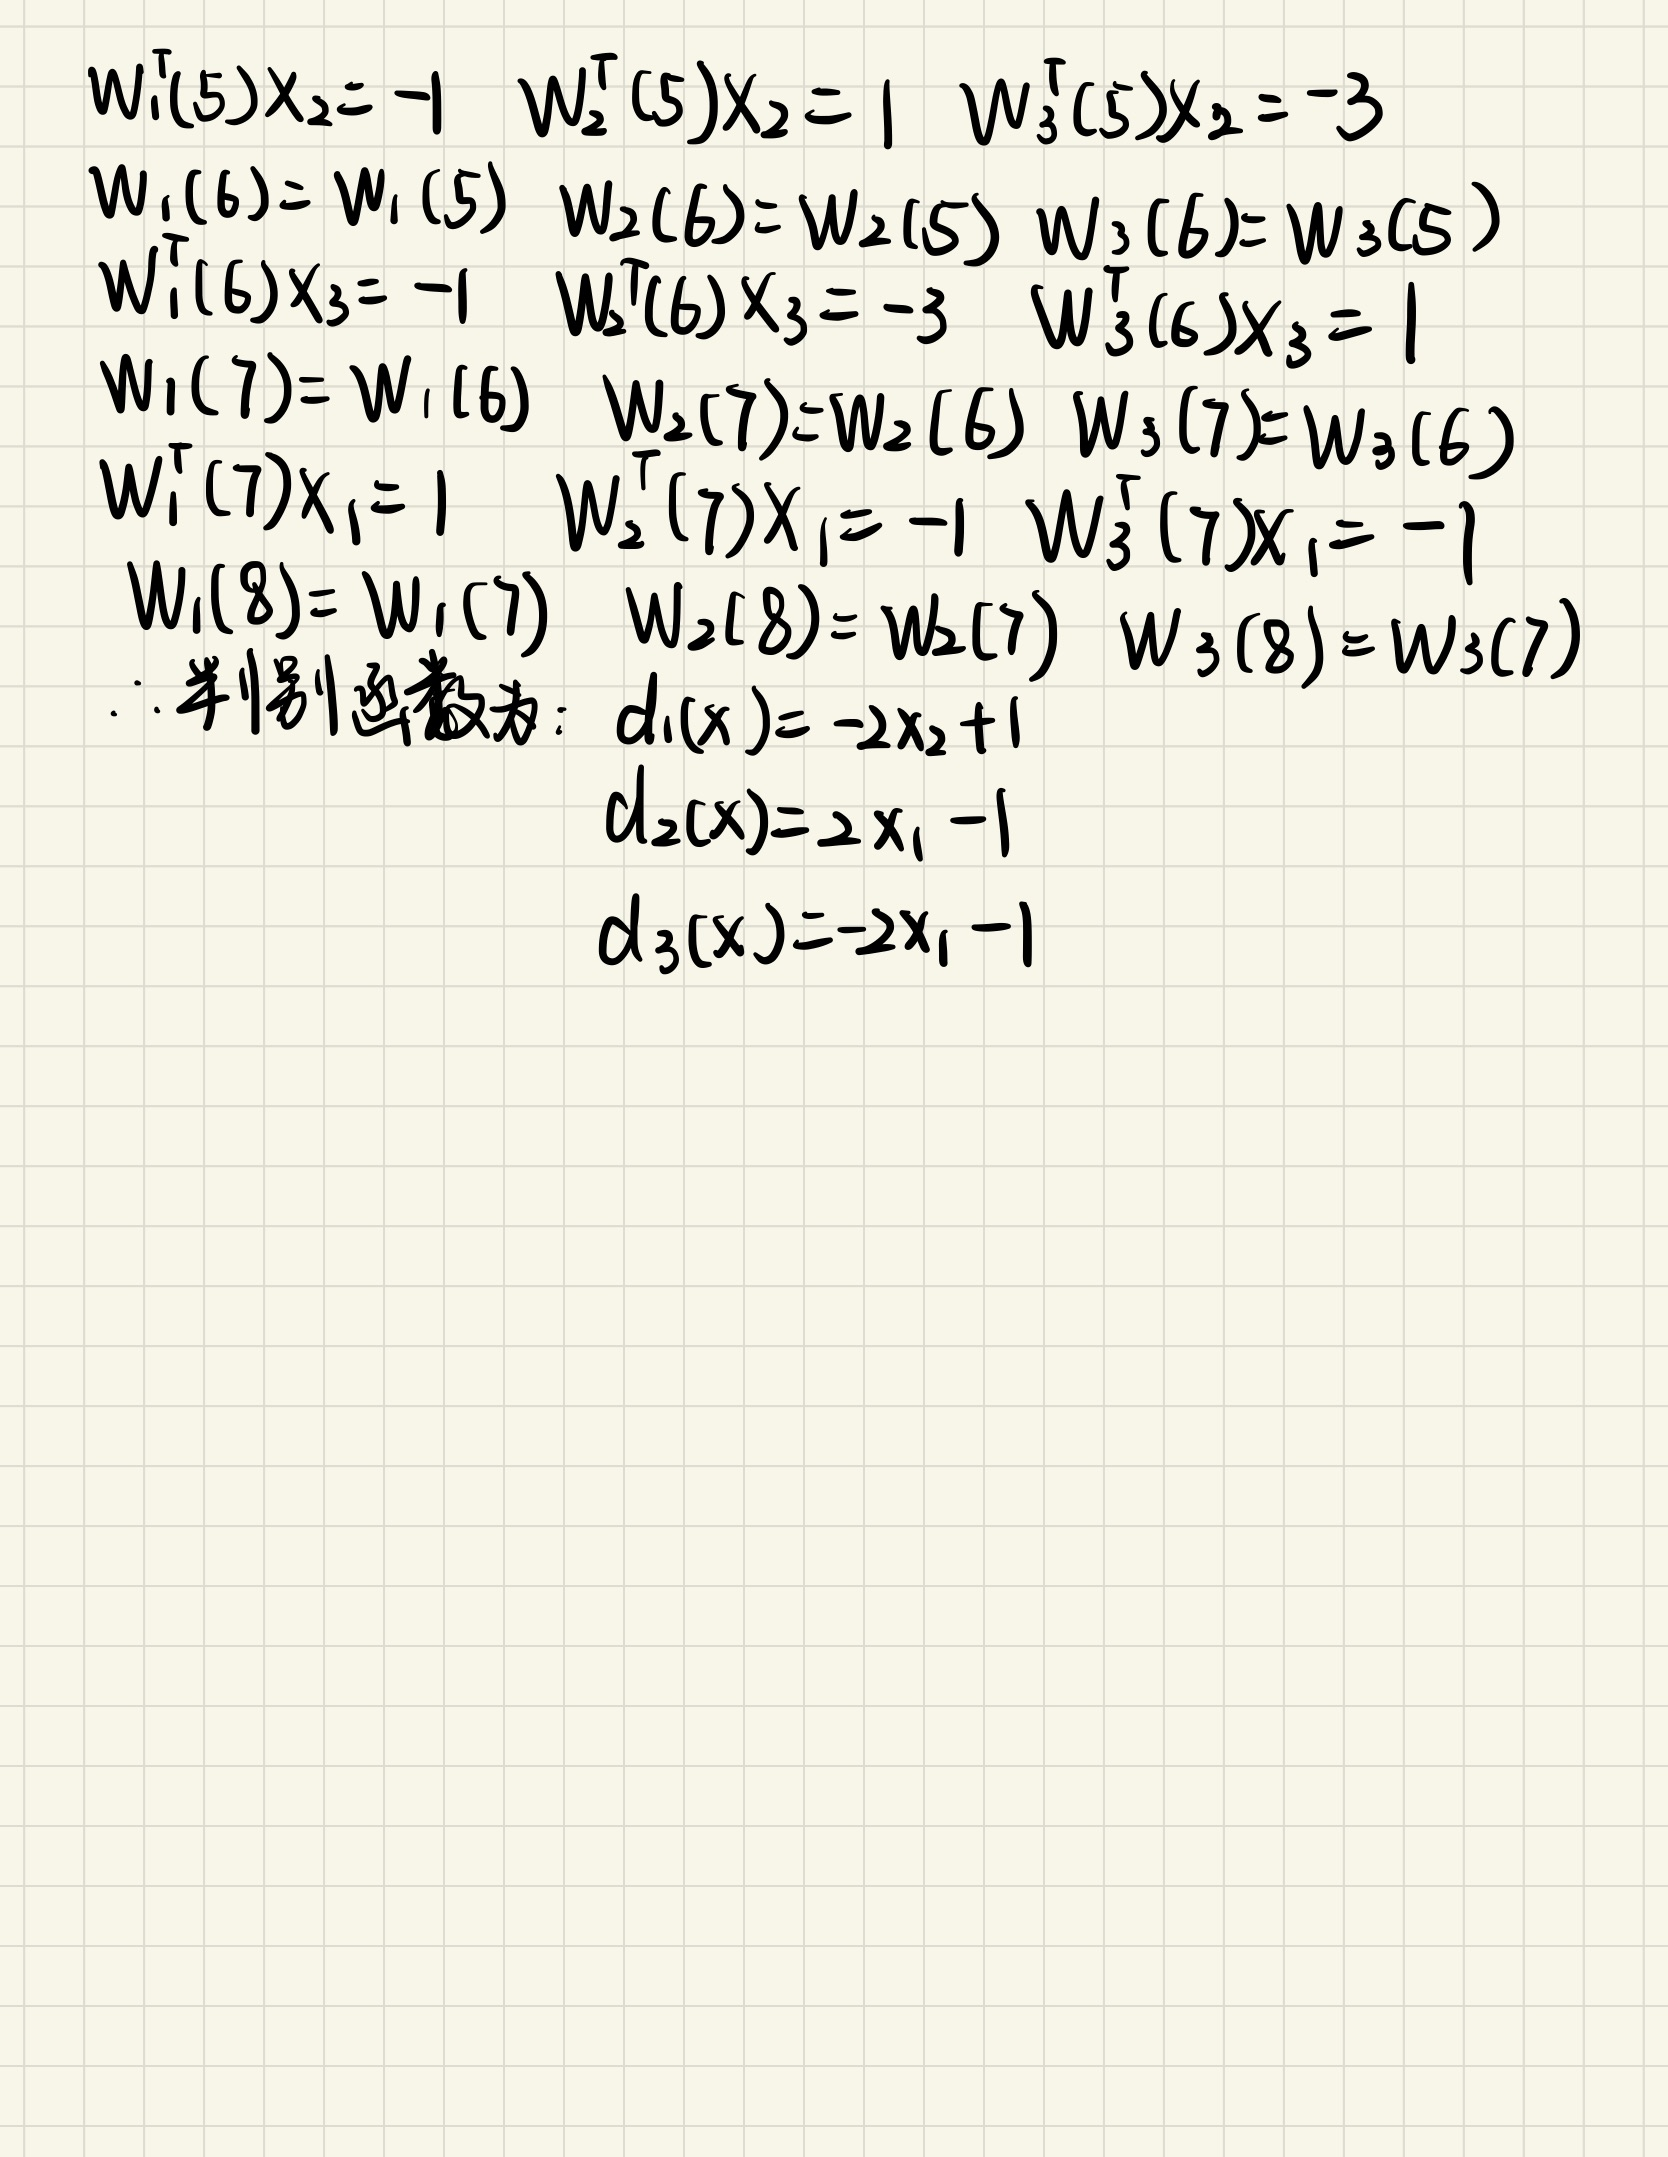 W₁ᵀ(5)X₂ = -1 W₂ᵀ(5)X₂ = 1 W₃ᵀ(5)X₂ = -3
W₁(6) = W₁(5) W₂(6) = W₂(5) W₃(6) = W₃(5)
W₁ᵀ(6)X₃ = -1 W₂ᵀ(6)X₃ = -3 W₃ᵀ(6)X₃ = 1
W₁(7) = W₁(6) W₂(7) = W₂(6) W₃(7) = W₃(6)
W₁ᵀ(7)X₁ = 1 W₂ᵀ(7)X₁ = -1 W₃ᵀ(7)X₁ = -1
W₁(8) = W₁(7) W₂(8) = W₂(7) W₃(8) = W₃(7)
∴ 判别函数为: d₁(x) = -2x₂+1
d₂(x) = 2x₁ -1
d₃(x) = -2x₁ -1